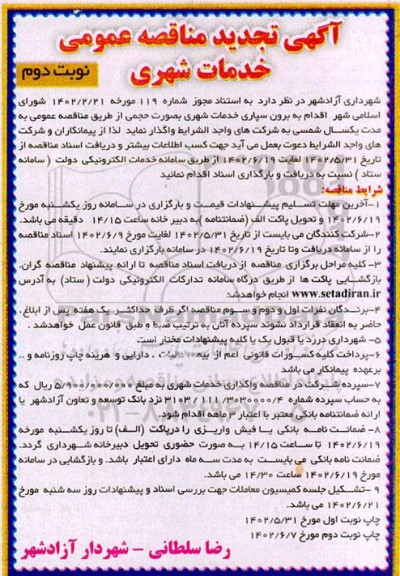 آگهی تجدید مناقصه عمومی
خدمات شهری
نوبت دوم
شهرداری آزادشهر در نظر دارد به استناد مجوز شماره ۱۱۹ مورخه ۱۴۰۲/۲/۲۱ شورای
اسلامی شهر اقدام به برون سپاری خدمات شهری بصورت حجمی از طریق مناقصه عمومی به
مدت یکسال شمسی به شرکت های واجد الشرایط واگذار نماید لذا از پیمانکاران و شرکت
های واجد الشرایط دعوت بعمل می آید جهت کسب اطلاعات بیشتر و دریافت اسناد مناقصه از
تاریخ ۱۴۰۲/۵/۳۱ لغایت ۱۴۰۲/۶/۱۹ از طریق سامانه خدمات الکترونیکی دولت ( سامانه
ستاد ) نسبت به دریافت و بارگذاری اسناد اقدام نمائید
شرایط مناقصه:
۱-آخرین مهلت تسلیم پیشنهادات قیمت و بارگزاری در سامانه روز یکشنبه مورخ
۱۴۰۲/۶/۱۹ و تحویل پاکت الف (ضمانتنامه )به دبیر خانه ساعت ۱۴/۱۵ دقیقه می باشد.
۲-شرکت کنندگان می بایست از تاریخ ۱۴۰۲/۵/۳۱ لغایت مورخ ۱۴۰۲/۶/۹ اسناد مناقصه
را از سامانه دریافت وتا تاریخ ۱۴۰۲/۶/۱۹ در سامانه بارگزاری نمایند.
۳-کلیه مراحل برگزاری مناقصه از دریافت اسناد مناقصه تا ارائه پیشنهاد مناقصه گران.
بازگشایی پاکت ها از طریق درگاه سامانه تدارکات الکترونیکی دولت ( ستاد) به آدرس
www.setadiran.ir انجام خواهدشد
۴-برندگان نفرات اول و دوم و سوم مناقصه اگر ظرف حداکثر یک هفته پس از ابلاغ ،
حاضر به انعقاد قرارداد نشوند سپرده آنان به ترتیب ضبط و طبق قانون عمل خواهدشد .
۵- شهرداری در رد یا قبول یک یا کلیه پیشنهادات مختار است
۶-پرداخت کلیه کسورات قانونی اعم از بیمه ، مالیات ، دارایی و هزینه چاپ روزنامه و ..
برعهده پیمانکار می باشد
۷-سپرده شرکت در مناقصه واگذاری خدمات شهری به مبلغ ۵/۹۰۰/۰۰۰/۰۰۰ ریال که
به حساب سپرده شماره ۳۱۰۳/۱۱۱/۳۰۳۰۰۰/۴ نزد بانک توسعه و تعاون آزادشهر یا
ارائه ضمانتنامه بانکی معتبر با اعتبار ۳ ماهه اقدام شود.
۸-ضمانت نامه بانکی یا فیش واریزی را درپاکت (الف) تا روز یکشنبه مورخه
۱۴۰۲/۶/۱۹ تا ساعت ۱۴/۱۵ به صورت حضوری تحویل دبیرخانه شهرداری گردد.
ضمانت نامه بانکی می بایست به مدت سه ماه دارای اعتبار باشد. و بازگشایی در سامانه
مورخ ۱۴۰۲/۶/۱۹ ساعت ۱۴/۳۰ می باشد.
۹-تشکیل جلسه کمیسیون معاملات جهت بررسی اسناد و پیشنهادات روز سه شنبه مورخ
۱۴۰۲/۶/۲۱ می باشد.
چاپ نوبت اول مورخ ۱۴۰۲/۵/۳۱
چاپ نوبت دوم مورخ ۱۴۰۲/۶/۷
رضا سلطانی - شهردار آزادشهر